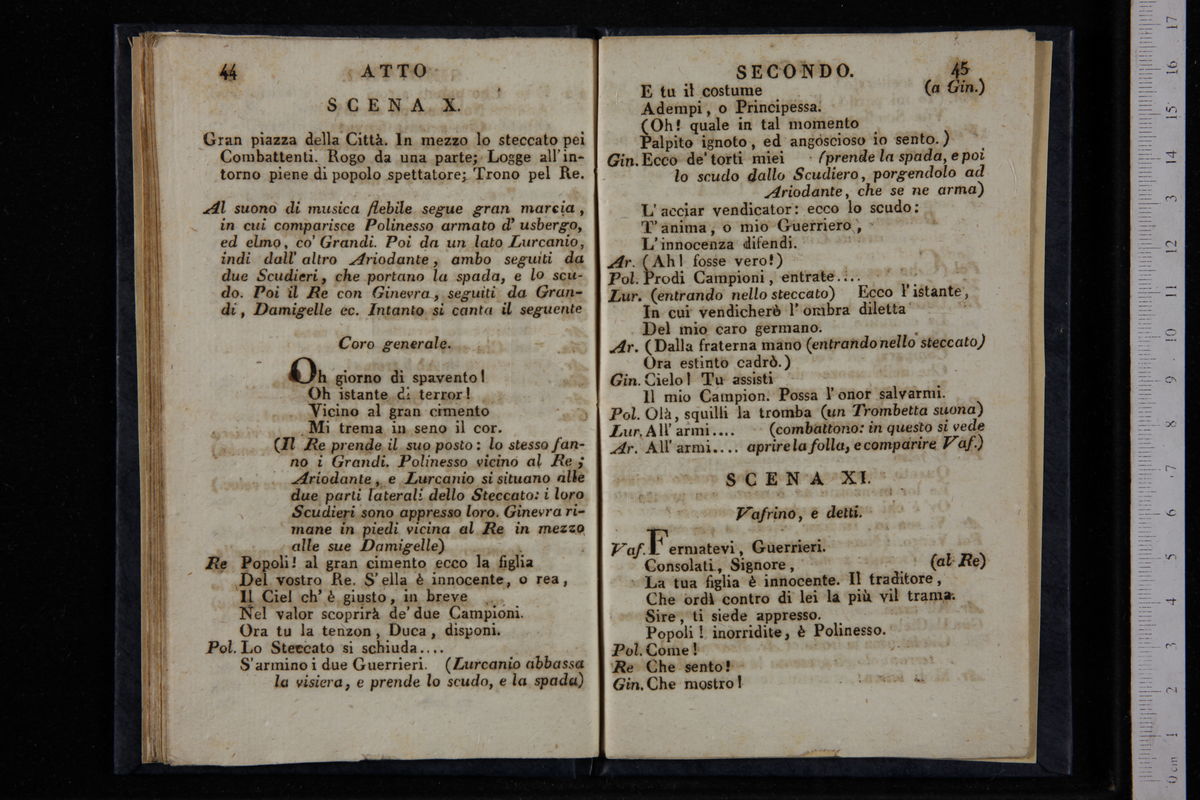 44 ATTO
SCENA X.
Gran piazza della Città. In mezzo lo steccato pei
Combattenti. Rogo da una parte; Logge all'in-
torno piene di popolo spettatore; Trono pel Re.
Al suono di musica flebile segue gran marcia,
in cui comparisce Polinesso armato d' usbergo,
ed elmo, co' Grandi. Poi da un lato Lurcanio,
indi dall' altro Ariodante, ambo seguiti da
due Scudieri, che portano la spada, e lo scu-
do. Poi il Re con Ginevra, seguiti da Gran-
di, Damigelle ec. Intanto si canta il seguente
Coro generale.
Oh giorno di spavento!
Oh istante di terror!
Vicino al gran cimento
Mi trema in seno il cor.
(Il Re prende il suo posto: lo stesso fan-
no i Grandi. Polinesso vicino al Re;
Ariodante, e Lurcanio si situano alle
due parti laterali dello Steccato: i loro
Scudieri sono appresso loro. Ginevra ri-
mane in piedi vicina al Re in mezzo
alle sue Damigelle)
Re Popoli! al gran cimento ecco la figlia
Del vostro Re. S' ella è innocente, o rea,
Il Ciel ch' è giusto, in breve
Nel valor scoprirà de' due Campioni.
Ora tu la tenzon, Duca, disponi.
Pol. Lo Steccato si schiuda....
S'armino i due Guerrieri. (Lurcanio abbassa
la visiera, e prende lo scudo, e la spada)
SECONDO. 45
E tu il costume (a Gin.)
Adempi, o Principessa.
(Oh! quale in tal momento
Palpito ignoto, ed angoscioso io sento.)
Gin. Ecco de' torti miei (prende la spada, e poi
lo scudo dallo Scudiero, porgendolo ad
Ariodante, che se ne arma)
L' acciar vendicator: ecco lo scudo:
T' anima, o mio Guerriero,
L' innocenza difendi.
Ar. (Ah! fosse vero!)
Pol. Prodi Campioni, entrate....
Lur. (entrando nello steccato) Ecco l' istante,
In cui vendicherò l' ombra diletta
Del mio caro germano.
Ar. (Dalla fraterna mano (entrando nello steccato)
Ora estinto cadrò.)
Gin. Cielo! Tu assisti
Il mio Campion. Possa l' onor salvarmi.
Pol. Olà, squilli la tromba (un Trombetta suona)
Lur. All' armi.... (combattono: in questo si vede
Ar. All' armi.... aprire la folla, e comparire Vaf.)
SCENA XI.
Vafrino, e detti.
Vaf. Fermatevi, Guerrieri.
Consolati, Signore, (al Re)
La tua figlia è innocente. Il traditore,
Che ordì contro di lei la più vil trama.
Sire, ti siede appresso.
Popoli! inorridite, è Polinesso.
Pol. Come!
Re Che sento!
Gin. Che mostro!
0 cm 1 2 3 4 5 6 7 8 9 10 11 12 13 14 15 16 17